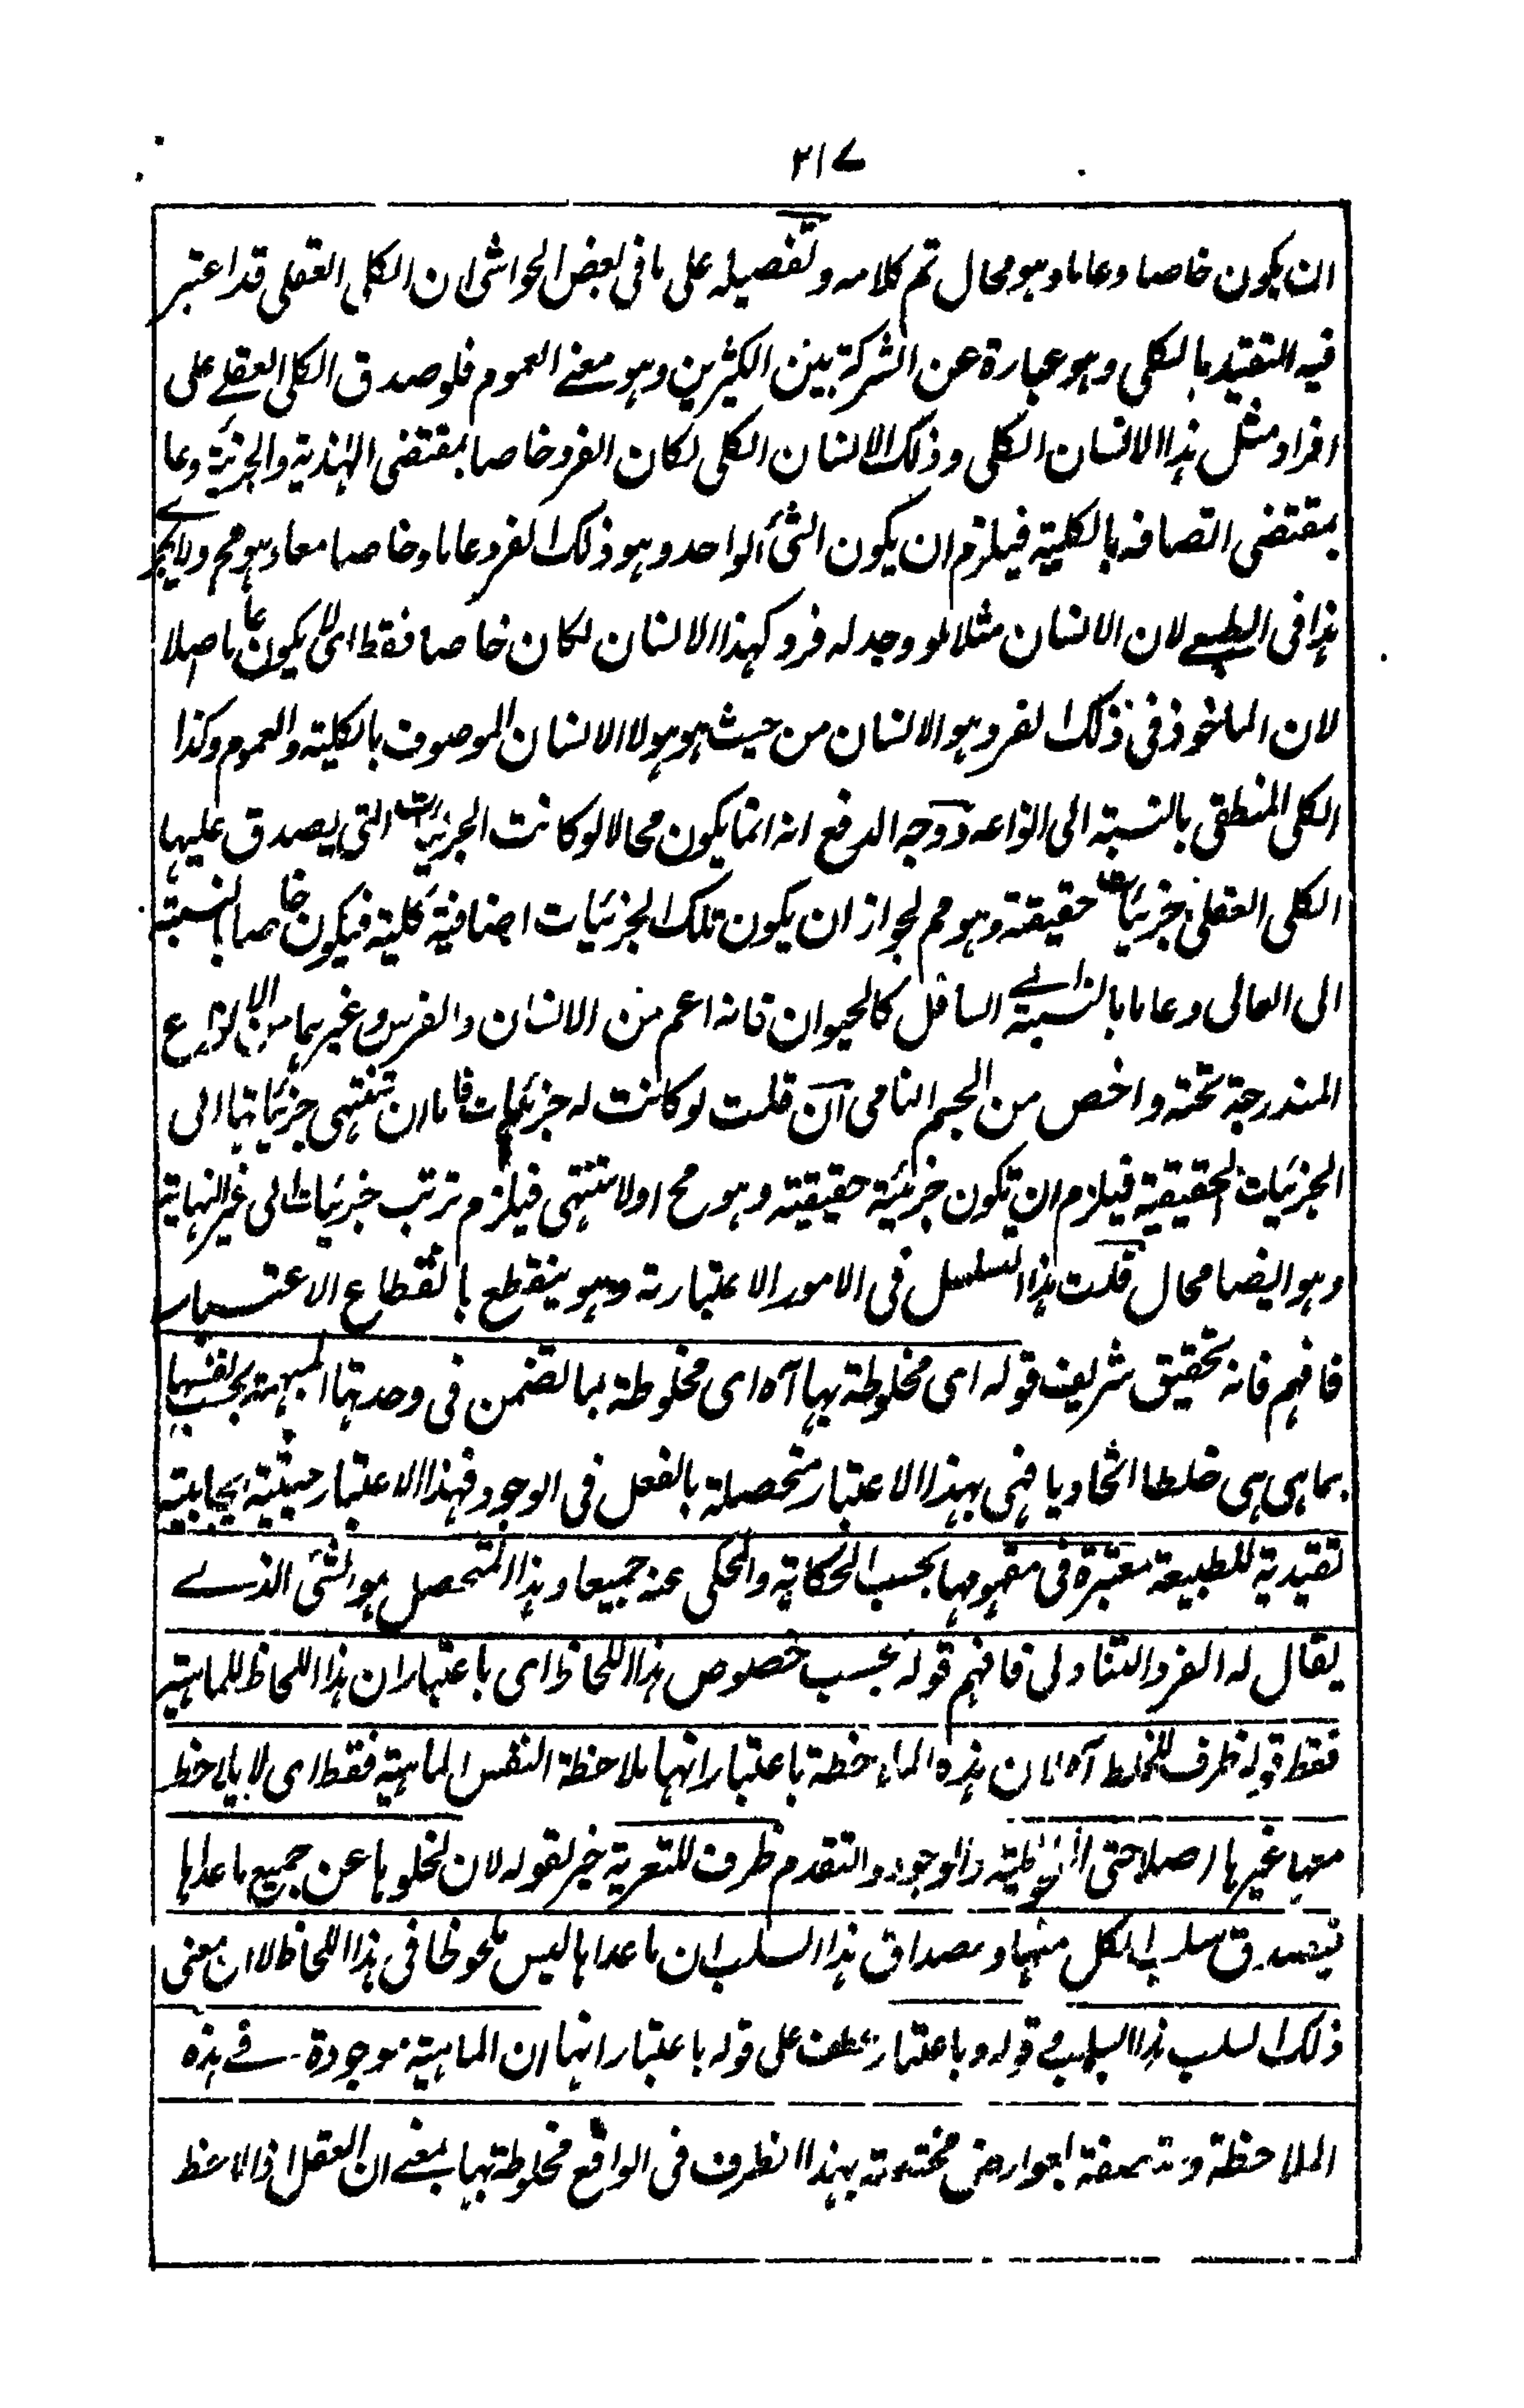 ٢١٧
ان يكون خاصا وعاما وهو محال تم كلامه وتفصيله على ما في بعض الحواشي ان الكلي العقلي قد اعتبر
فيه التقييد بالكلي وهو عبارة عن الشركة بين الكثيرين وهو معنے العموم فلو صدق الكلي العقلے على
افراد مثل هذا الانسان الكلي وذلك الانسان الكلي لكان الفرد خاصا بمقتضى الهذية والجزئية وعاما
بمقتضى اتصافه بالكلية فيلزم ان يكون الشئ الواحد وهو ذلك الفرد عاما وخاصا معا وهو مح ولا يجرے
هذا في الطبيعے لان الانسان مثلا لو وجد له فرد كهذا الانسان لكان خاصا فقط اى لا يكون عاما اصلا
لان الماخوذ في ذلك الفرد هو الانسان من حيث هو هو لا الانسان الموصوف بالكلية والعموم وكذا
الكلي المنطقي بالنسبة الى انواعه ووجه الدفع انه انما يكون محالا لو كانت الجزئيات التي يصدق عليها
الكلي العقلي جزئيات حقيقة وهو مم لجواز ان يكون تلك الجزئيات اضافية كلية فيكون خاصا بالنسبة
الى العالي وعاما بالنسبة الے السافل كالحيوان فانه اعم من الانسان والفرس وغيرهما من الانواع
المندرجة تحته واخص من الجسم النامي ان قلت لو كانت له جزئيات فاما ان تنتهي جزئياتها الى
الجزئيات الحقيقية فيلزم ان تكون جزئية حقيقية وهو مح اولا تنتهي فيلزم ترتب جزئيات الى غير النهاية
وهو ايضا محال قلت هذا التسلسل في الامور الاعتبارية وهو ينقطع بانقطاع الاعتبار
فافهم فانه تحقيق شريف قوله اى مخلوطة بها آه اى مخلوطة بما تضمن في وحدتها المبهمة بحسب نفسها
بما هي هي خلطا اتحاديا فهي بهذا الاعتبار متحصلة بالفعل في الوجود فهذا الاعتبار حيثية ايجابية
تقيدية للطبيعة معتبرة في مفهومها بحسب الحكاية والمحكي عنه جميعا وهذا المتحصل هو الشئ الذے
يقال له الفرد التناولي فافهم قوله بحسب خصوص هذا اللحاظ اى باعتبار ان هذا اللحاظ للماهية
فقط قوله ظرف للخلط آه لان هذه الملاحظة باعتبار انها ملاحظة النفس الماهية فقط اى لا يلاحظ
معها غيرها اصلا حتى المخلوطية والوجود والتقدم ظرف للتعرية خبر لقوله لان لخلوها عن جميع ما عداها
فيصدق سلب الكل منها ومصداق هذا السلب ان ما عداها ليس ملحوظا في هذا اللحاظ لا ان معنى
ذلك السلب هذا السلب قوله وباعتبار عطف على قوله باعتبار انها ان الماهية موجودة في هذه
الملاحظة ومتصفة بعوارض مختصة بهذا الظرف في الواقع مخلوطة بها بمعنے ان العقل اذا لاحظ